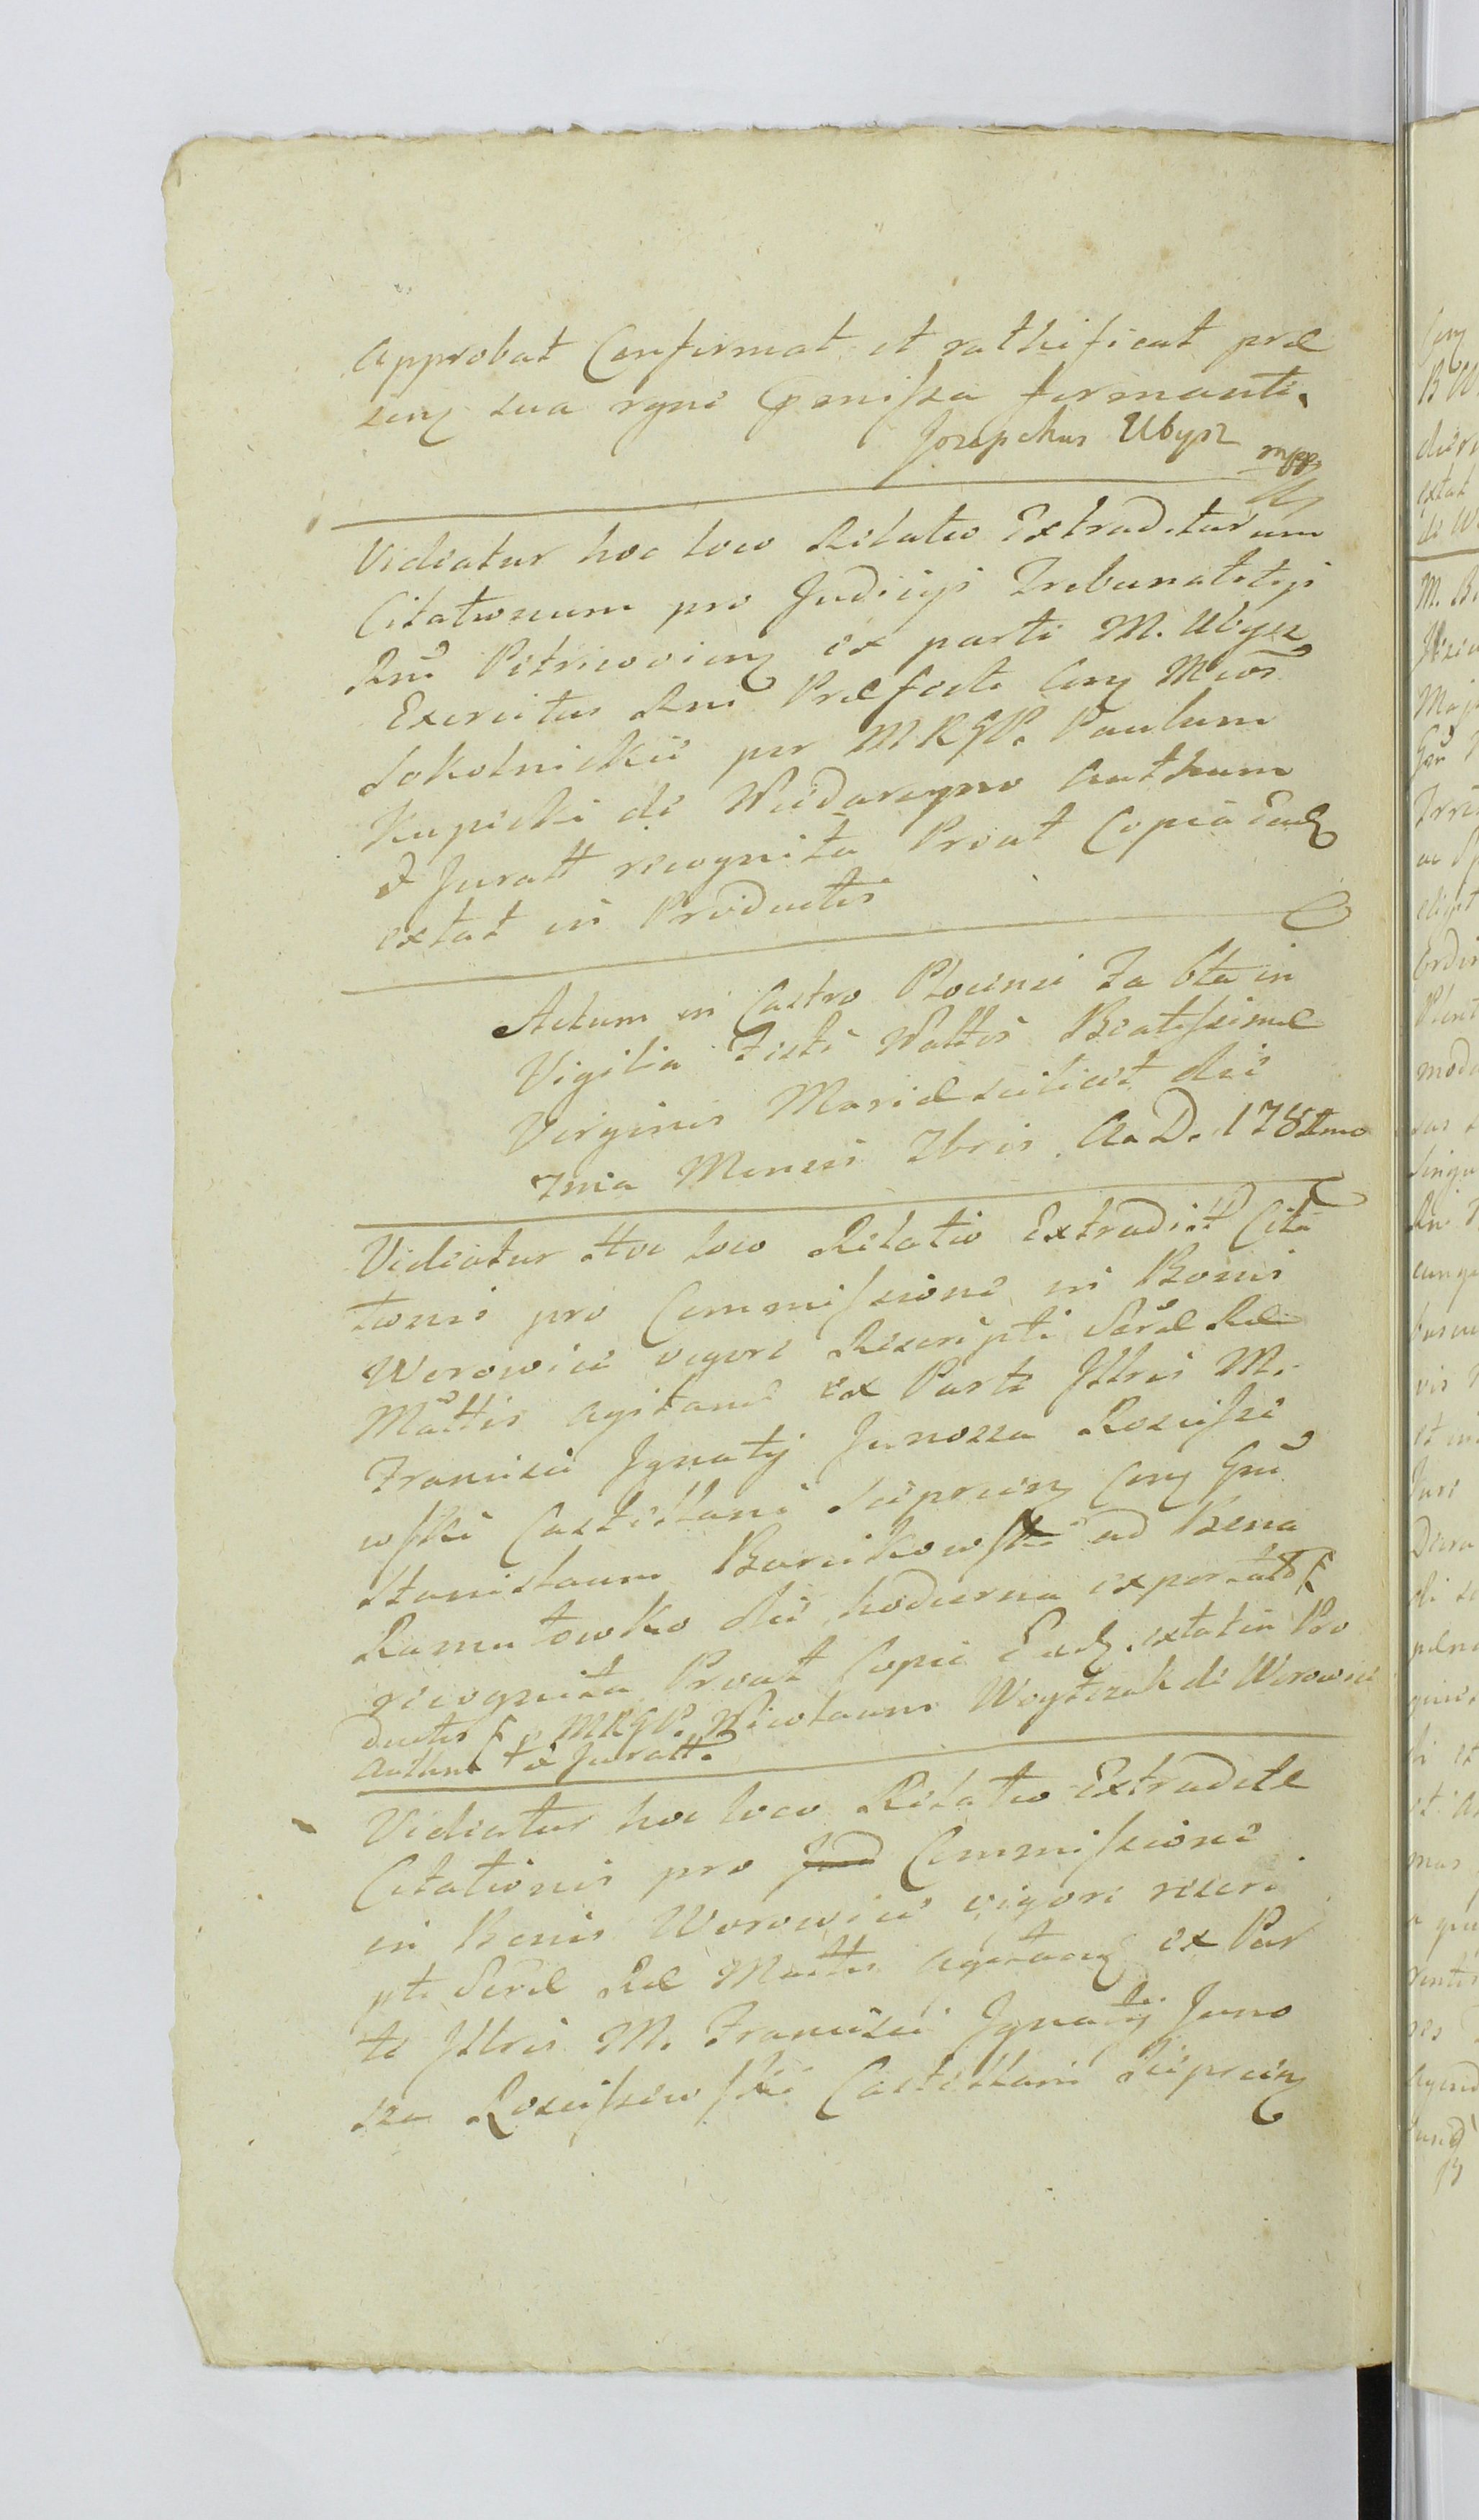 Approbat Confirmat et rathificat præ
senz sua rgni permissa firmanti.
Josephus Ubysz mpp
Videatur hoc loco Relatio Extraditarum
Citationum pro Judicijs Tribunalitijs
Rni Petricovienz ex parte M. Ubysz
Exercitus Rni Præfecti Conz Mcos
Sokolnickie per MRGP. Paulum
Kupicki de Authum
& Juratt recognita Prout Copia Eadz
extat in Productis
Actum in Castro Plocensi Fa 6ta in
Vigilia Festi Nattis Beatissimæ
Virginis Mariæ scilicet die
7ma Mensis 7bris A. D. 1782mo
Videatur Hoc loco Relatio Extradit Cita
tionis pro Commissione in Bonis
Worowice vigore Rescripti Seræ Ræ
Mattis agitand ex Parte Jllris M.
Francisci Jgnatij Junosza Roscisze
wski Castellani Sieprcenz Conz Gnu
Stanislaum Borzikowski ad Bona
Ramutowko die hodierna exportato
recognita Prout Copia Eadz. extat in Pro
ductis p. MRGP. Nicolaum Woytczak de Worowice
Authent & Juratt.
Videatur hoc loco Relatio Extraditæ
Citationis pro Jud Commissione
in Bonis Worowice vigore rescri
pti Seræ Ræ Mattis agitanz ex Par
te Jllris M. Francisci Jgnatij Juno
sza Rosciszewski Castellani Sieprcenz